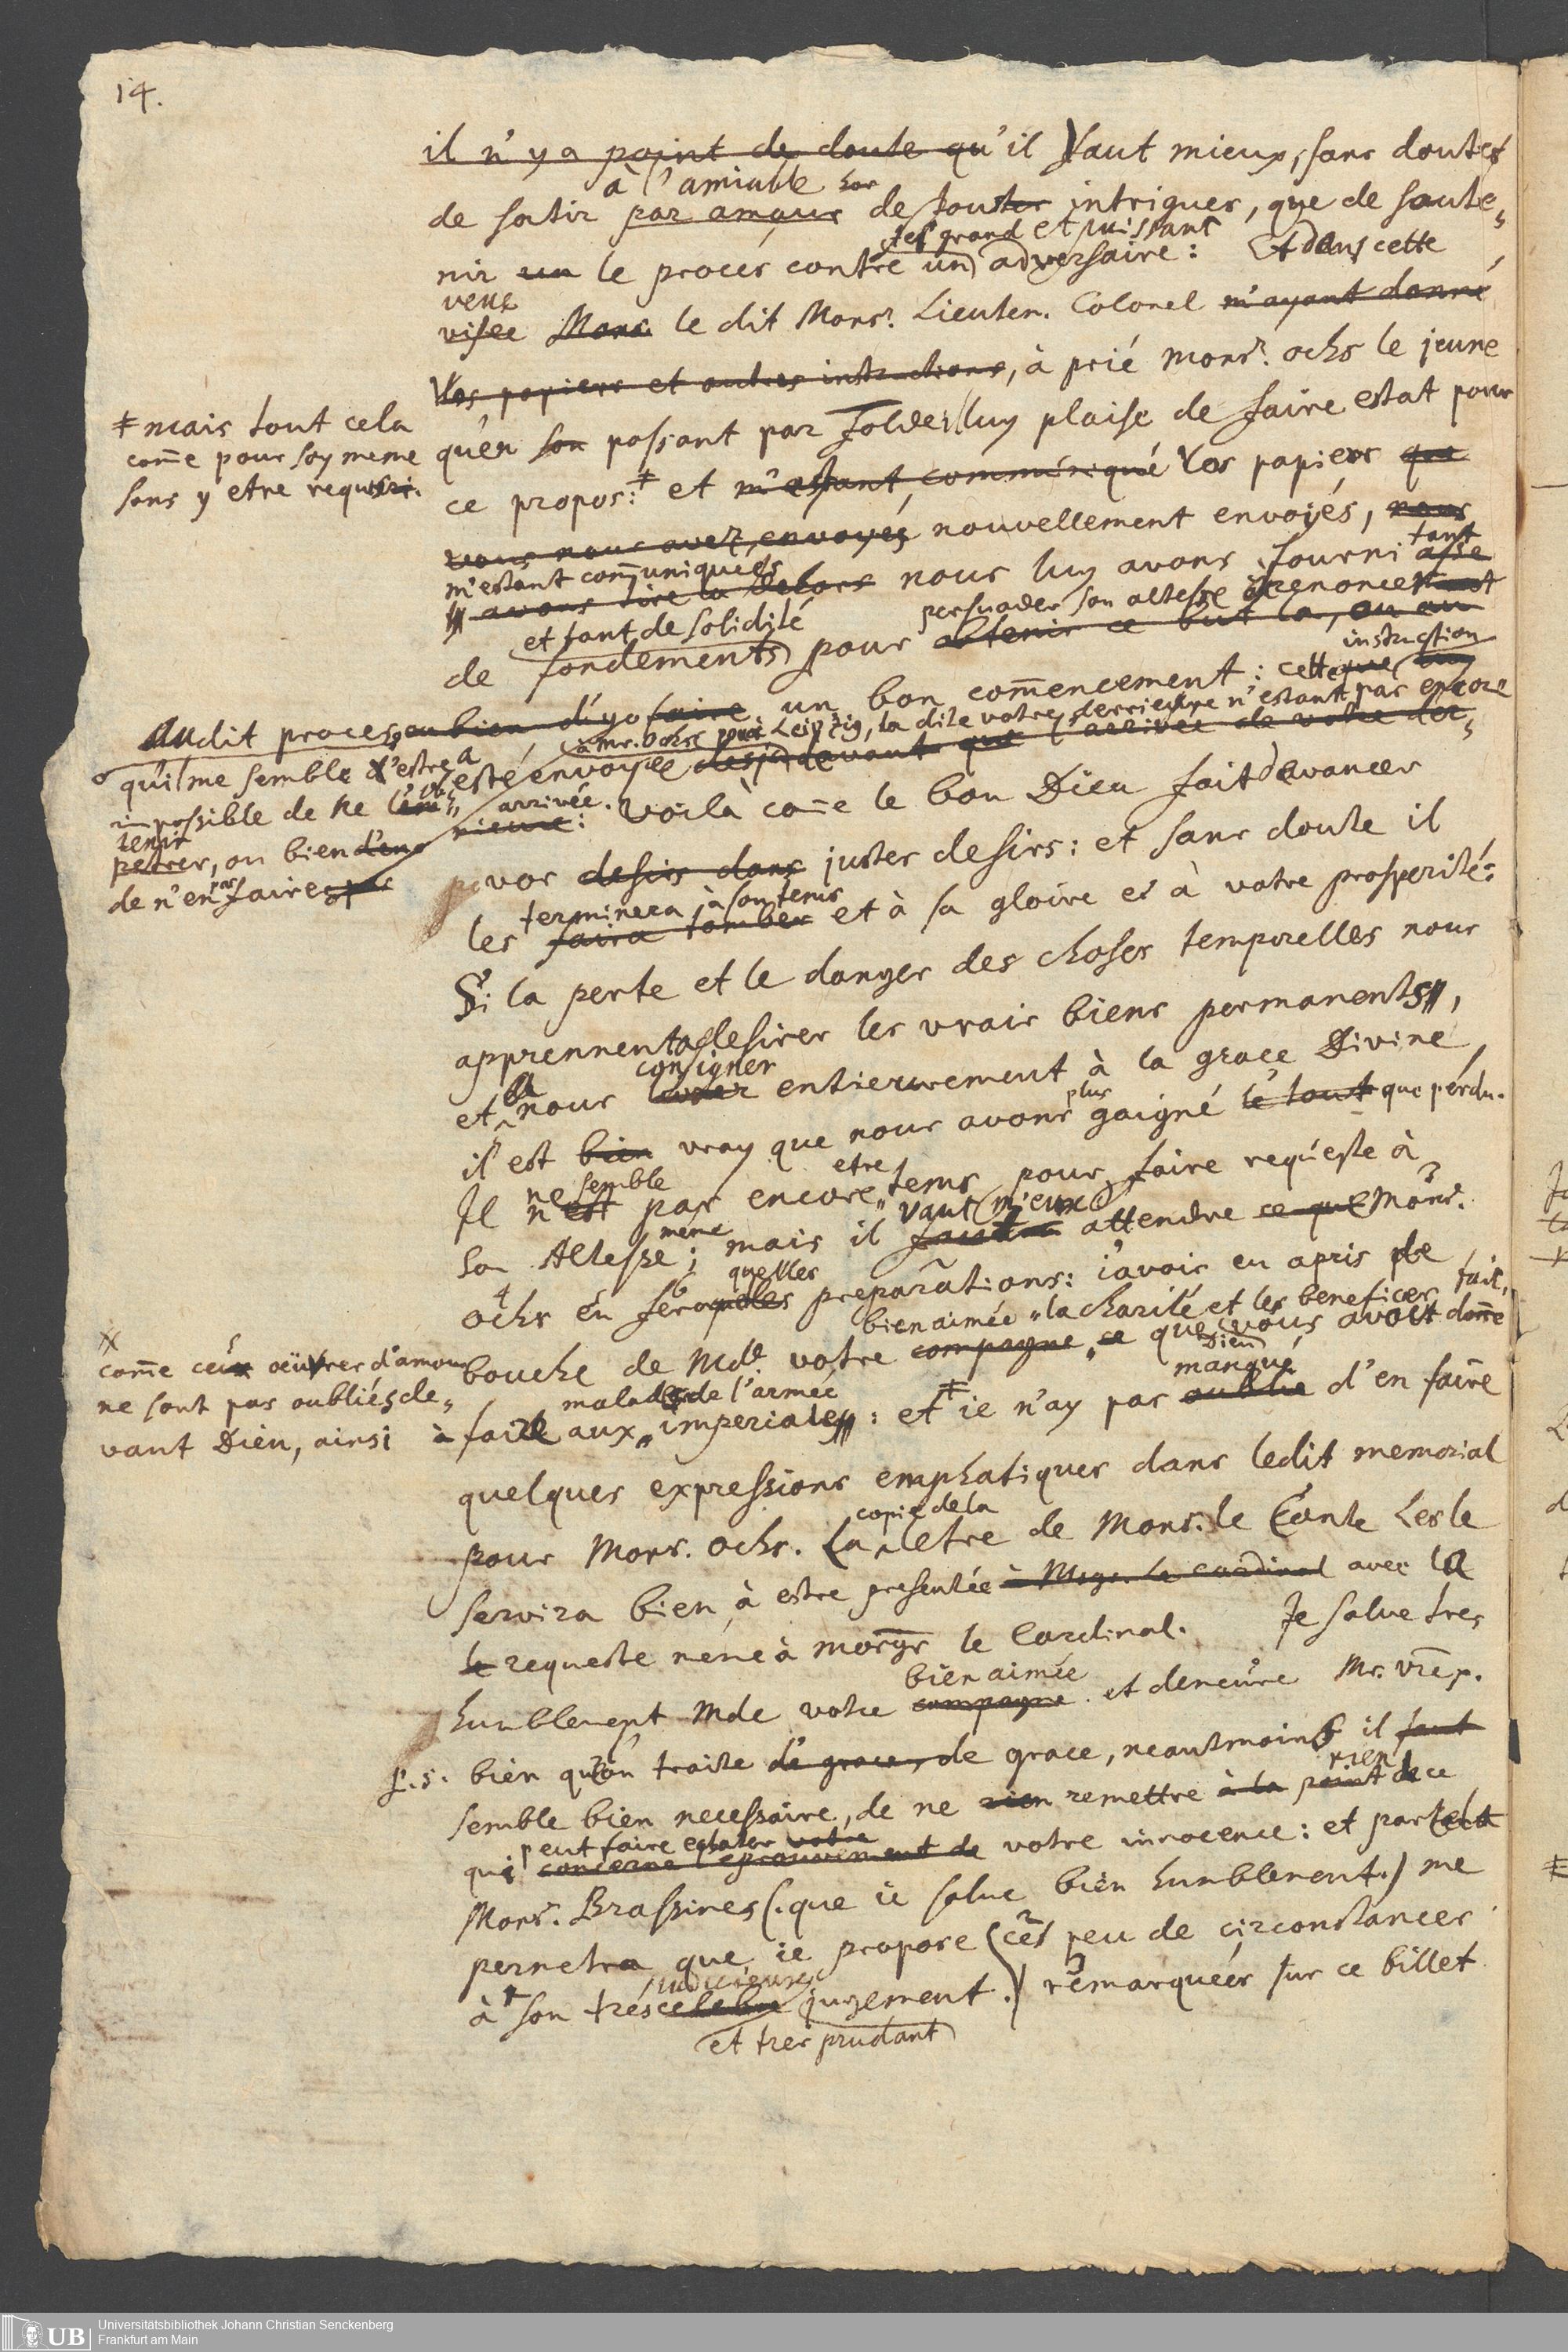 14.
il n'y a point de doute qu'il Vaut mieux, sans doute,
à l'amiable hor
de sortir par amour de toutes intrigues, que de soute„
tel grand et puissant
nir un le proces contre un adversaire: Et dans cette
veue
visee Mons. le dit Monsr. Lieuten. Colonel m'ayant donné
Vos papiers et autres instructions, à prié Monsr. ochs le jeune
qu'en son passant par luy plaise de faire estat pour
ce propos:‡ et m'estant communiqué Vos papiers que
‡ mais tout cela
come pour soy meme
sans y etre requeri.
vous nous avez envoyés nouvellement envoyés, nous
m'estant communiquées
avons tire la nous luy avons fourni tant
persuader son altesse à renoncer
et tant de solidité
de fondements pour obtenir ce but la, ou au
instruction
Audit proces, ou bien d'y faire un bon comencement: cette que
à Mr. Ochs pour Leipzig, la dite votre derriere n'estant pas encore
a esté envoyée desja devant que l'arrivée de votre der„
o qu'il me semble d'estre
impossible de ne l'em„
tenir
petrer, ou bien d'en
de n'en pas faire
arrivée.
nieure: voilà come le bon Dieu fait devancer
vos desirs dans justes desirs: et sans doute il
terminera à son tems
les faira tomber et à sa gloire et à votre prosperité:
Si la perte et le danger des choses temporelles nous
apprennent a desirer les vrais biens permanents,
consigner
et a nous entierurement à la grace Divine,
plus
il est bien vray que nous avons gaigné le tout que perdu.
ne semble etre
Il n'est pas encore„ tems pour faire requeste à
meme vaut mieux
Son Altesse; mais il faut attendre ce que Monsr.
quelles
ochs en fera preparations: j'avois eu apris de
bien aimée „la charité et les benefices fait,
bouche de Mde. votre compagne, ce que vous avoit donné
Dieu
x
come ceux oeüvres d'amour
ne sont pas oubliés de„
vant Dieu, ainsi
malades de l'armée manqué
à faire aux„ imperiale: et‡ ie n'ay pas oublié d'en faire
quelques expressions emphatiques dans ledit memorial
copie de la
pour Monsr. ochs. La letre de Monsr. le Conte Lesle
servira bien à estre presentée à Msgr. le cardinal avec la
le requeste mene à Monsgr le Cardinal. Je salue tres
bien aimée
humblement Mde votre compagne et demeure Mr. vre p.
P.S. bien qu'on traite de grace, de grace, neantmoins il faut
rien
semble bien necessaire, de ne rien remettre à la point de ce
peut faire eclater votre
qui concerne votre innocence: et par cela
Monsr. Brassines (.que ie salue bien humblement.) me
permetra que ie propose ces peu de circonstances
judicieux
à son très celebre jugement.) remarquées sur ce billet
et tres prudant
Universitätsbibliothek Johann Christian Senckenberg
Frankfurt am Main
UB